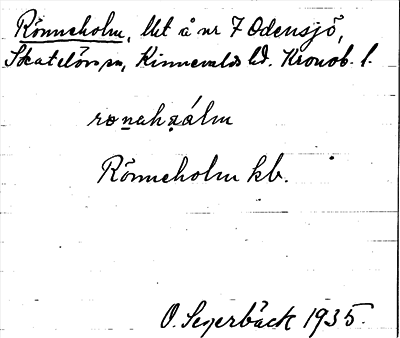 Rönneholm, lht å nr 7 Odensjö,
Skatelövs sn, Kinnevalds hd. Kronob. l.
rønahzálm
Rönneholm kb.
O. Segerbäck 1935.